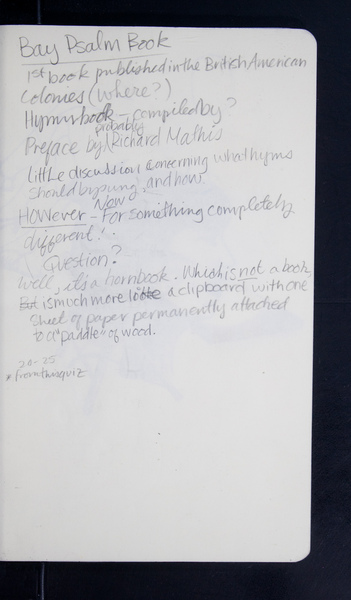 Bay Psalm Book
1st book published in the British American
Colonies (where?)
Hymnbook – compiled by?
probably
Preface by Richard Mathis
Little discussion concerning what hyms
should by sung, and how.
Now
However – For something completely
different!
Question?
Well, it's a hornbook. Which is not a book,
But is much more like a clipboard with one
Sheet of paper permanently attached
to a "paddle" of wood.
20-25
* from this quiz